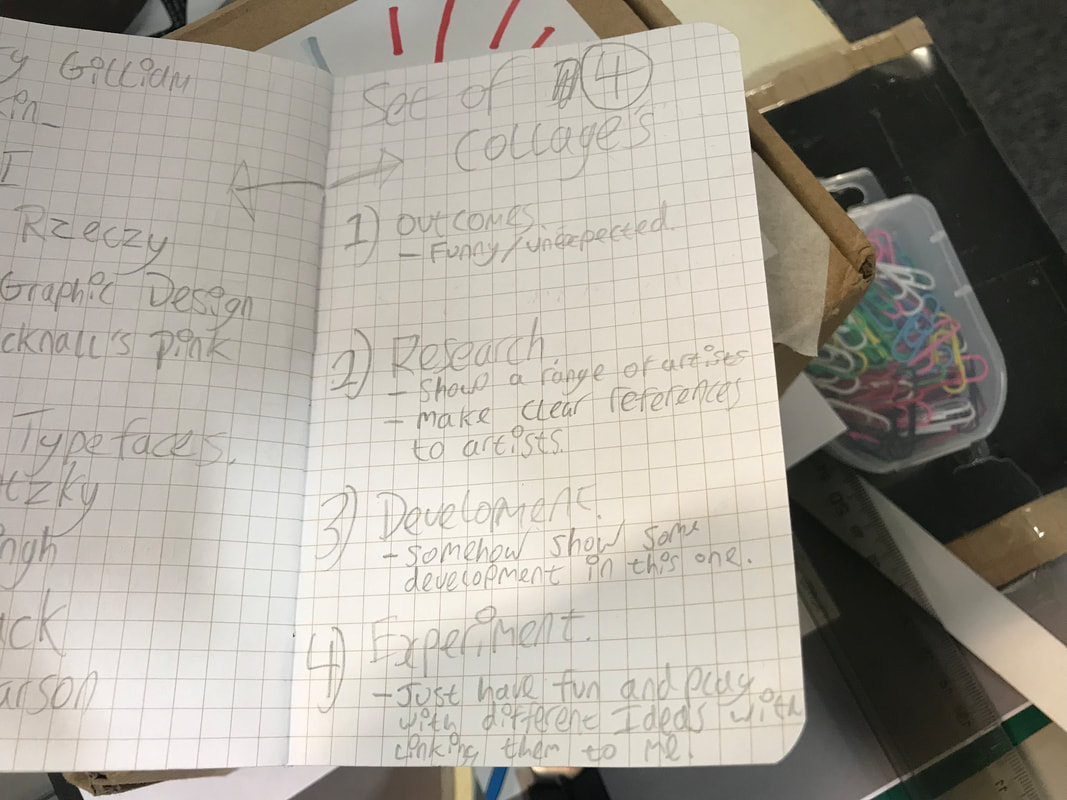 y Gilliam
in_
I
Rzeczy
Graphic Design
cknall's pink
Typefaces.
tzky
ngh
ck
arson
Set of 4
Collages
1) outcomes.
- Funny/unexpected.
2) Research.
- Show a range of artists
- make clear references
to artists.
3) Development.
- somehow show some
development in this one.
4) Experiment.
- Just have fun and play
with different Ideas with
linking them to me.